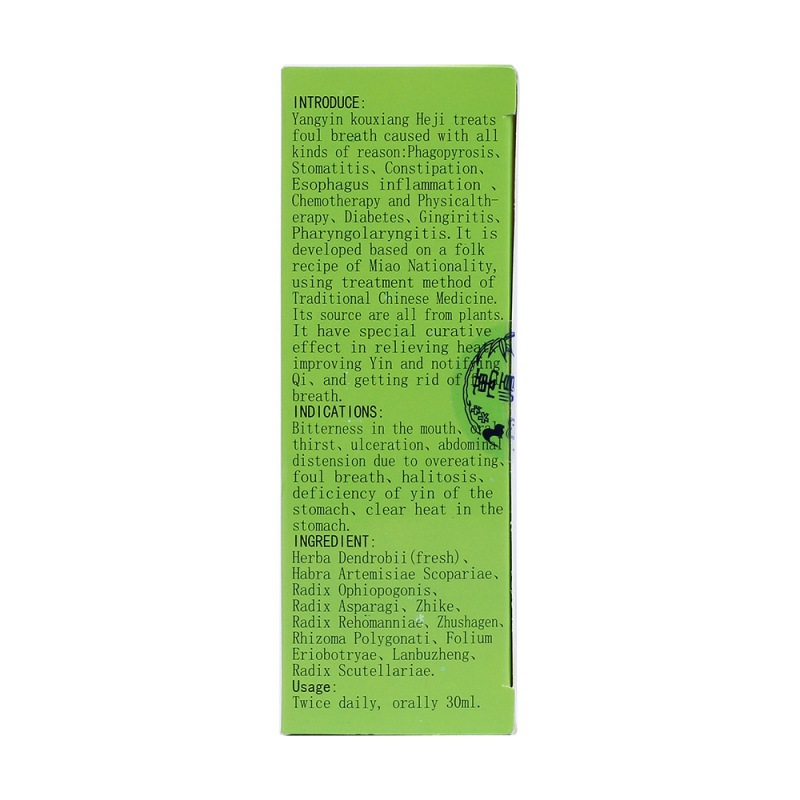 INTRODUCE:
Yangyin kouxiang Heji treats
foul breath caused with all
kinds of reason:Phagopyrosis、
Stomatitis、Constipation、
Esophagus inflammation 、
Chemotherapy and Physicalth-
erapy、Diabetes、Gingiritis、
Pharyngolaryngitis.It is
developed based on a folk
recipe of Miao Nationality,
using treatment method of
Traditional Chinese Medicine.
Its source are all from plants.
It have special curative
effect in relieving heat
improving Yin and notifying
Qi、and getting rid of
breath.
INDICATIONS:
Bitterness in the mouth、oral
thirst、ulceration、abdominal
distension due to overeating、
foul breath、halitosis、
deficiency of yin of the
stomach、clear heat in the
stomach.
INGREDIENT:
Herba Dendrobii(fresh)、
Habra Artemisiae Scopariae、
Radix Ophiopogonis、
Radix Asparagi、Zhike、
Radix Rehomanniae、Zhushagen、
Rhizoma Polygonati、Folium
Eriobotryae、Lanbuzheng、
Radix Scutellariae.
Usage:
Twice daily, orally 30ml.